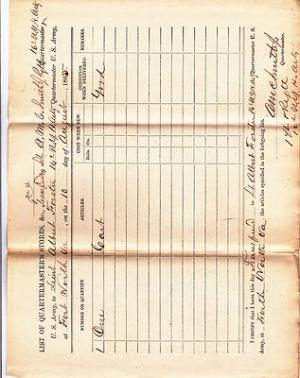 LIST OF QUARTERMASTER'S STORES, &c., Transferred by A. M. C. Smith
Quartermaster
U. S. Army, to Lieut Albert Foster 16th N.Y. Arty Quartermaster U. S. Army,
at Fort Worth Va, on the 10 day of August, 186
NUMBER OR QUANTITY.
ARTICLES.
COST WHEN NEW.
CONDITION WHEN DELIVERED.
REMARKS.
Dolls. Cts.
1 One Cart Good
I certify that I have this day Transferred to Lt. Albert Foster Quartermaster U. S.
Army, at Forth Worth Va the articles specified in the foregoing list.
Smith
Quartermaster.